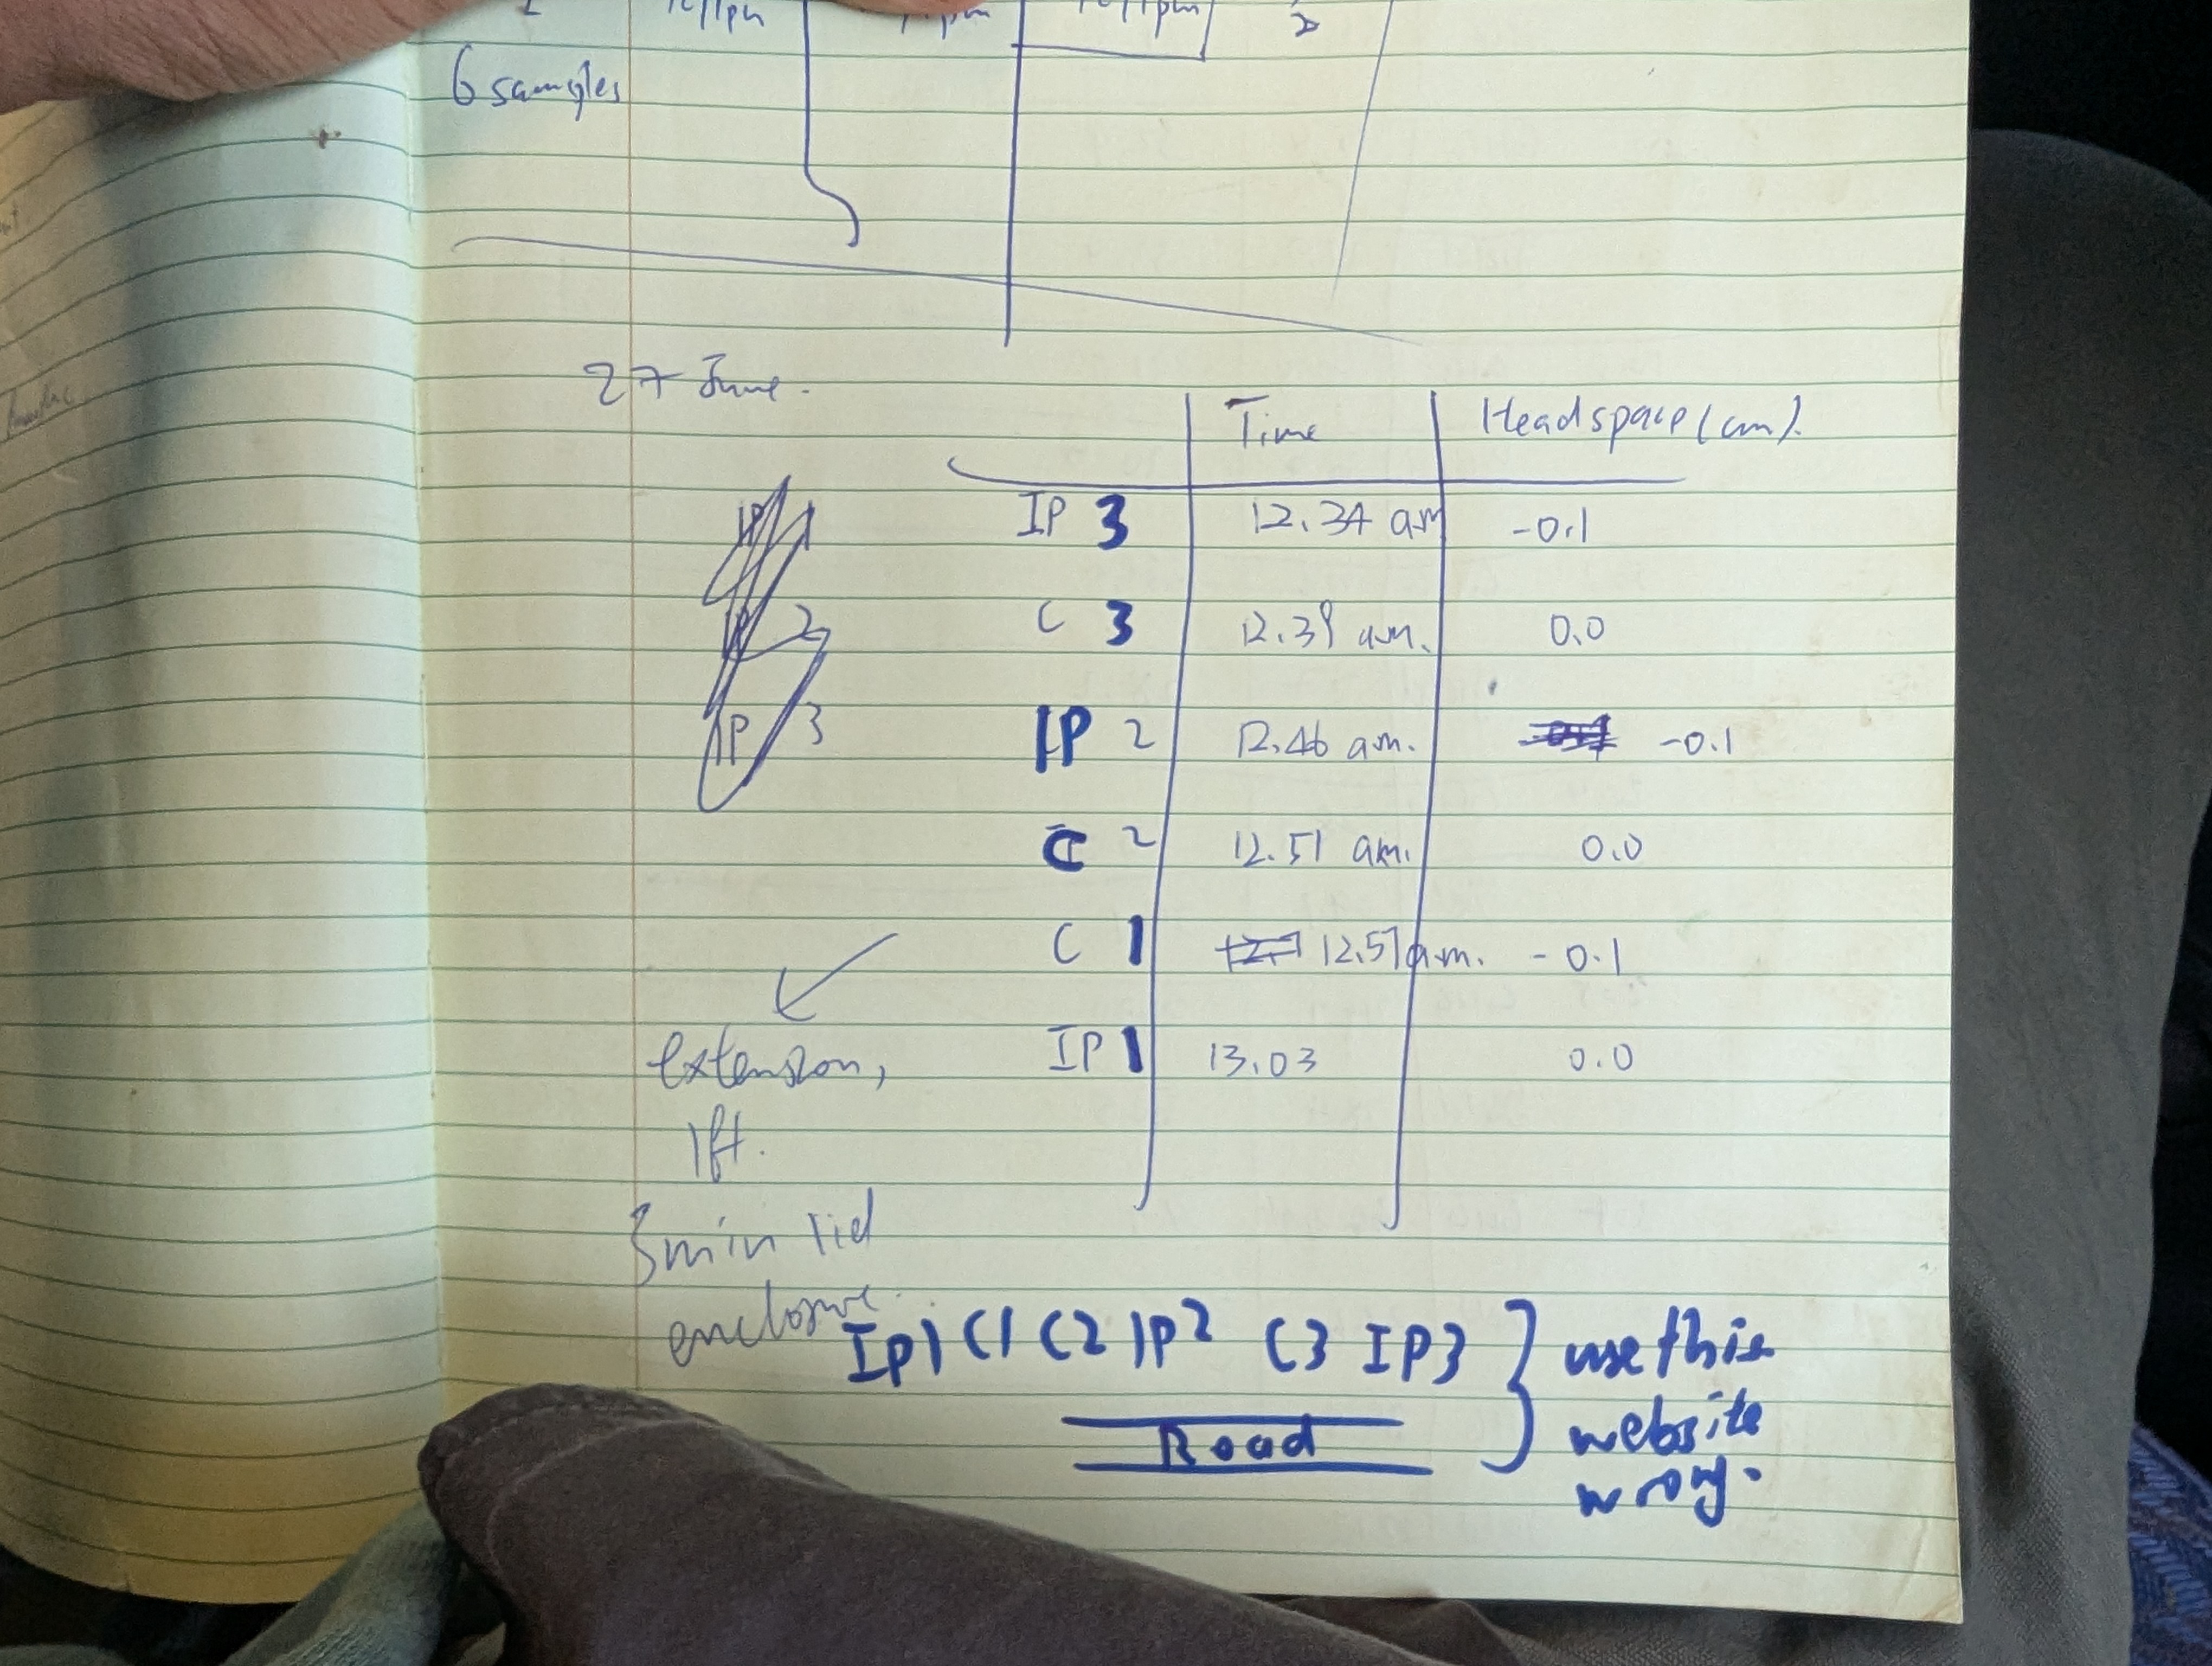 6 samples
27 June.
Time Headspace (cm).
IP 3 12.34 am -0.1
C 3 12.39 a.m. 0.0
IP 2 12.46 a.m. -0.1
C 2 12.51 am. 0.0
C 1 12.57 a.m. -0.1
IP 1 13.03 0.0
IP 1
IP 2
IP 3
extension,
1ft.
3min lid
enclosure.
IP1 C1 C2 IP2 C3 IP3 } use this
Road
website
wrong.